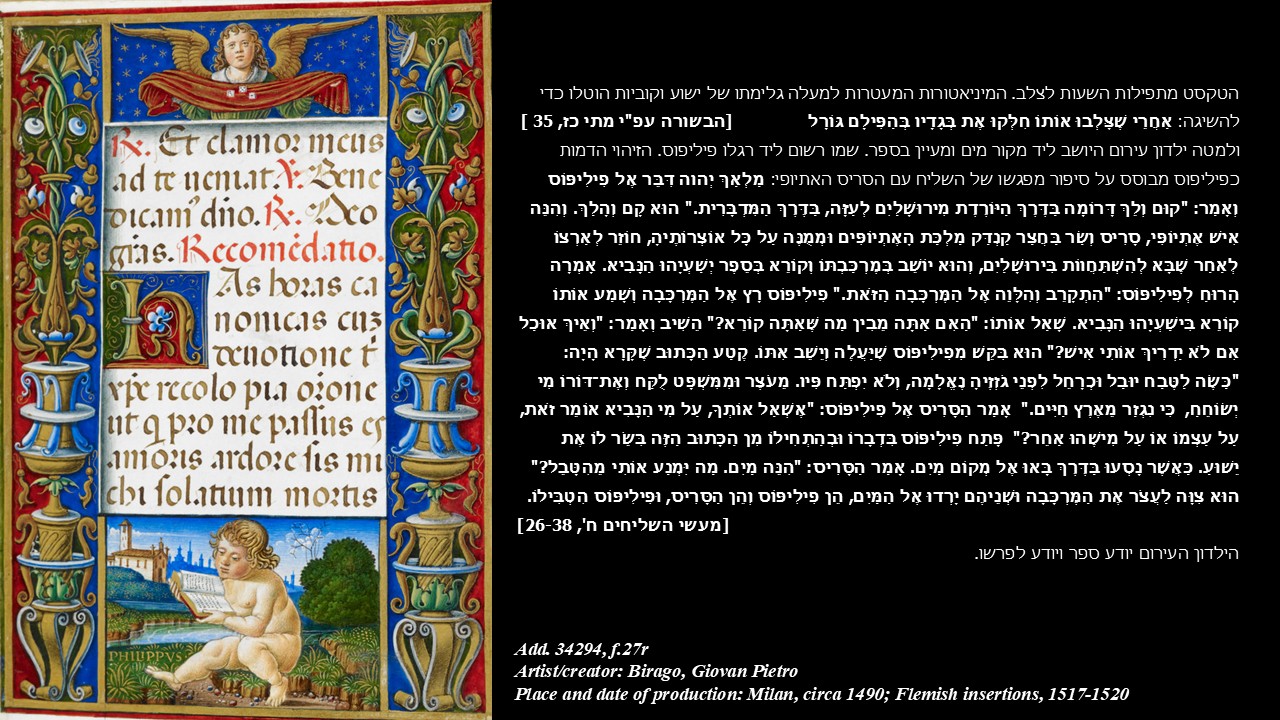 R. Et clamor meus
ad te ueniat. V. Bene
dicam' dn̄o. R. Deo
gr̄as. Recomēdatio.
HAs horas ca
nonicas cuz
deuotione t̄
xp̄e recolo pia or̄one
ut q pro me passus es
amoris ardore sis mi
chi solatium mortis
PHILIPPVS
הטקסט מתפילות השעות לצלב. המיניאטורות המעטרות למעלה גלימתו של ישוע וקוביות הוטלו כדי
להשיגה: אַחֲרֵי שֶׁצָּלְבוּ אוֹתוֹ חִלְּקוּ אֶת בְּגָדָיו בְּהַפִּילָם גּוֹרָל [הבשורה עפ"י מתי כז, 35 ]
ולמטה ילדון עירום היושב ליד מקור מים ומעיין בספר. שמו רשום ליד רגלו פיליפוס. הזיהוי הדמות
כפיליפוס מבוסס על סיפור מפגשו של השליח עם הסריס האתיופי: מַלְאַךְ יְהוה דִּבֵּר אֶל פִילִיפּוֹס
וְאָמַר: "קוּם וְלֵךְ דָּרוֹמָה בַּדֶּרֶךְ הַיּוֹרֶדֶת מִירוּשָׁלַיִם לְעַזָּה, בַּדֶּרֶךְ הַמִּדְבָּרִית." הוּא קָם וְהָלַךְ. וְהִנֵּה
אִישׁ אֶתְיוֹפִּי, סָרִיס וְשַׂר בַּחֲצַר קַנְדַּק מַלְכַּת הָאֶתְיוֹפִּים וּמְמֻנֶּה עַל כָּל אוֹצְרוֹתֶיהָ, חוֹזֵר לְאַרְצוֹ
לְאַחַר שֶׁבָּא לְהִשְׁתַּחֲווֹת בִּירוּשָׁלַיִם, וְהוּא יוֹשֵׁב בְּמֶרְכַּבְתּוֹ וְקוֹרֵא בְּסֵפֶר יְשַׁעְיָהוּ הַנָּבִיא. אָמְרָה
הָרוּחַ לְפִילִיפּוֹס: "הִתְקָרֵב וְהִלָּוֵה אֶל הַמֶּרְכָּבָה הַזֹּאת." פִילִיפּוֹס רָץ אֶל הַמֶּרְכָּבָה וְשָׁמַע אוֹתוֹ
קוֹרֵא בִּישַׁעְיָהוּ הַנָּבִיא. שָׁאַל אוֹתוֹ: "הַאִם אַתָּה מֵבִין מַה שֶּׁאַתָּה קוֹרֵא?" הֵשִׁיב וְאָמַר: "וְאֵיךְ אוּכַל
אִם לֹא יַדְרִיךְ אוֹתִי אִישׁ?" הוּא בִּקֵּשׁ מִפִילִיפּוֹס שֶׁיַּעֲלֶה וְיֵשֵׁב אִתּוֹ. קֶטַע הַכָּתוּב שֶׁקָּרָא הָיָה:
"כַּשֶּׂה לַטֶּבַח יוּבַל וּכְרָחֵל לִפְנֵי גֹזְזֶיהָ נֶאֱלָמָה, וְלֹא יִפְתַּח פִּיו. מֵעֹצֶר וּמִמִּשְׁפָּט לֻקַּח וְאֶת־דּוֹרוֹ מִי
יְשׂוֹחֵחַ, כִּי נִגְזַר מֵאֶרֶץ חַיִּים." אָמַר הַסָּרִיס אֶל פִילִיפּוֹס: "אֶשְׁאַל אוֹתְךָ, עַל מִי הַנָּבִיא אוֹמֵר זֹאת,
עַל עַצְמוֹ אוֹ עַל מִישֶׁהוּ אַחֵר?" פָּתַח פִילִיפּוֹס בִּדְבָרוֹ וּבְהַתְחִילוֹ מִן הַכָּתוּב הַזֶּה בִּשֵּׂר לוֹ אֶת
יֵשׁוּעַ. כַּאֲשֶׁר נָסְעוּ בַּדֶּרֶךְ בָּאוּ אֶל מְקוֹם מַיִם. אָמַר הַסָּרִיס: "הִנֵּה מַיִם. מַה יִּמְנַע אוֹתִי מֵהִטָּבֵל?"
הוּא צִוָּה לַעֲצֹר אֶת הַמֶּרְכָּבָה וּשְׁנֵיהֶם יָרְדוּ אֶל הַמַּיִם, הֵן פִילִיפּוֹס וְהֵן הַסָּרִיס, וּפִילִיפּוֹס הִטְבִּילוֹ.
[מעשי השליחים ח', 26-38]
הילדון העירום יודע ספר ויודע לפרשו.
Add. 34294, f.27r
Artist/creator: Birago, Giovan Pietro
Place and date of production: Milan, circa 1490; Flemish insertions, 1517-1520